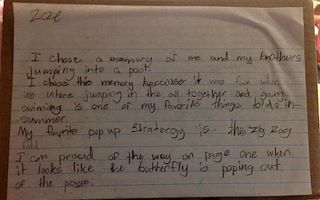 Zoe
I chose a memory of me and my brothers
jumping into a pool.
I chose this memory because it was fun when
we where jumping in the all together and going
swimming is one of my favorite things to do in
summer.
My favrite pop up stratergy is the zig zag
fold
I am proud of the way on page one when
it looks like the butterfly is poping out
of the page.